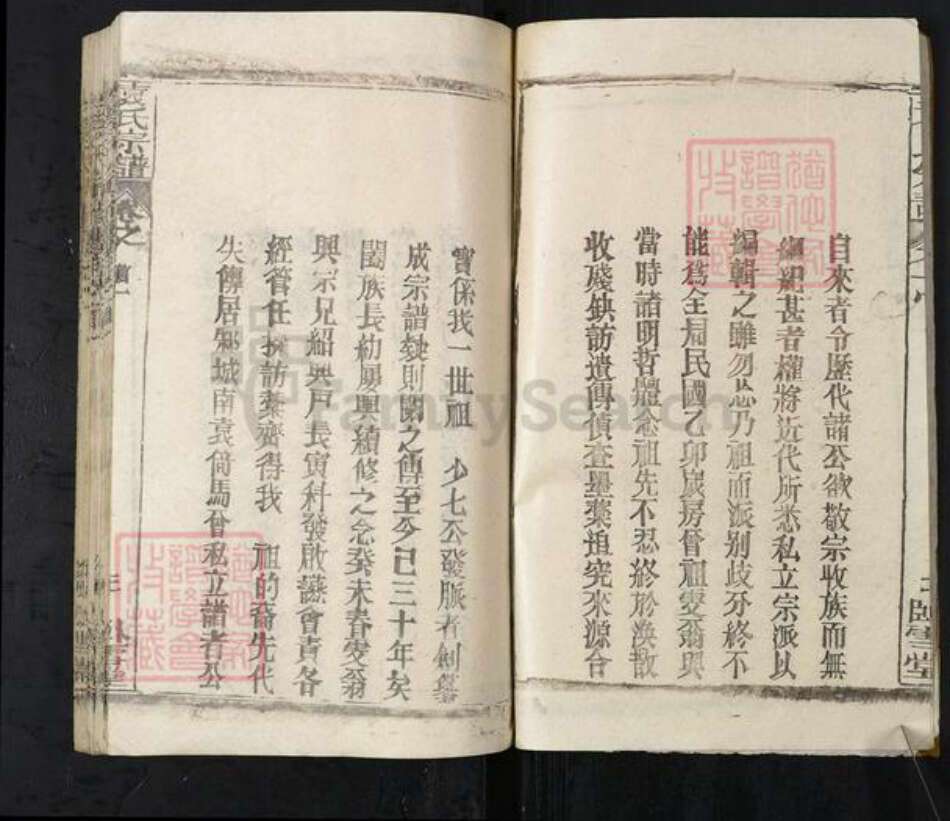 自來者令歷代諸公欲敬宗收族而無
綱紀甚者權將近代所悉私立宗派以
編輯之雖勿忘乃祖而派别歧分終不
能爲全局民國乙卯嵗房晉祖雯翁與
當時諸明哲體念祖先不忍終於渙散
收殘缺訪遺傳偵查墨藁追究來源合
實係我一世祖 少七公發脈者創纂
成宗譜婕則闕之傳至今已三十年矣
闔族長幼屢興續修之念癸未春雯翁
興宗兄紹興戶長寅科發啟議會責各
經管任採訪藁齊得我 祖的裔先代
失傳居邾城南袁倚馬曾私立譜者公
袁氏宗譜
卷之首一
臥雪堂
FamilySearch
譜學會
收藏